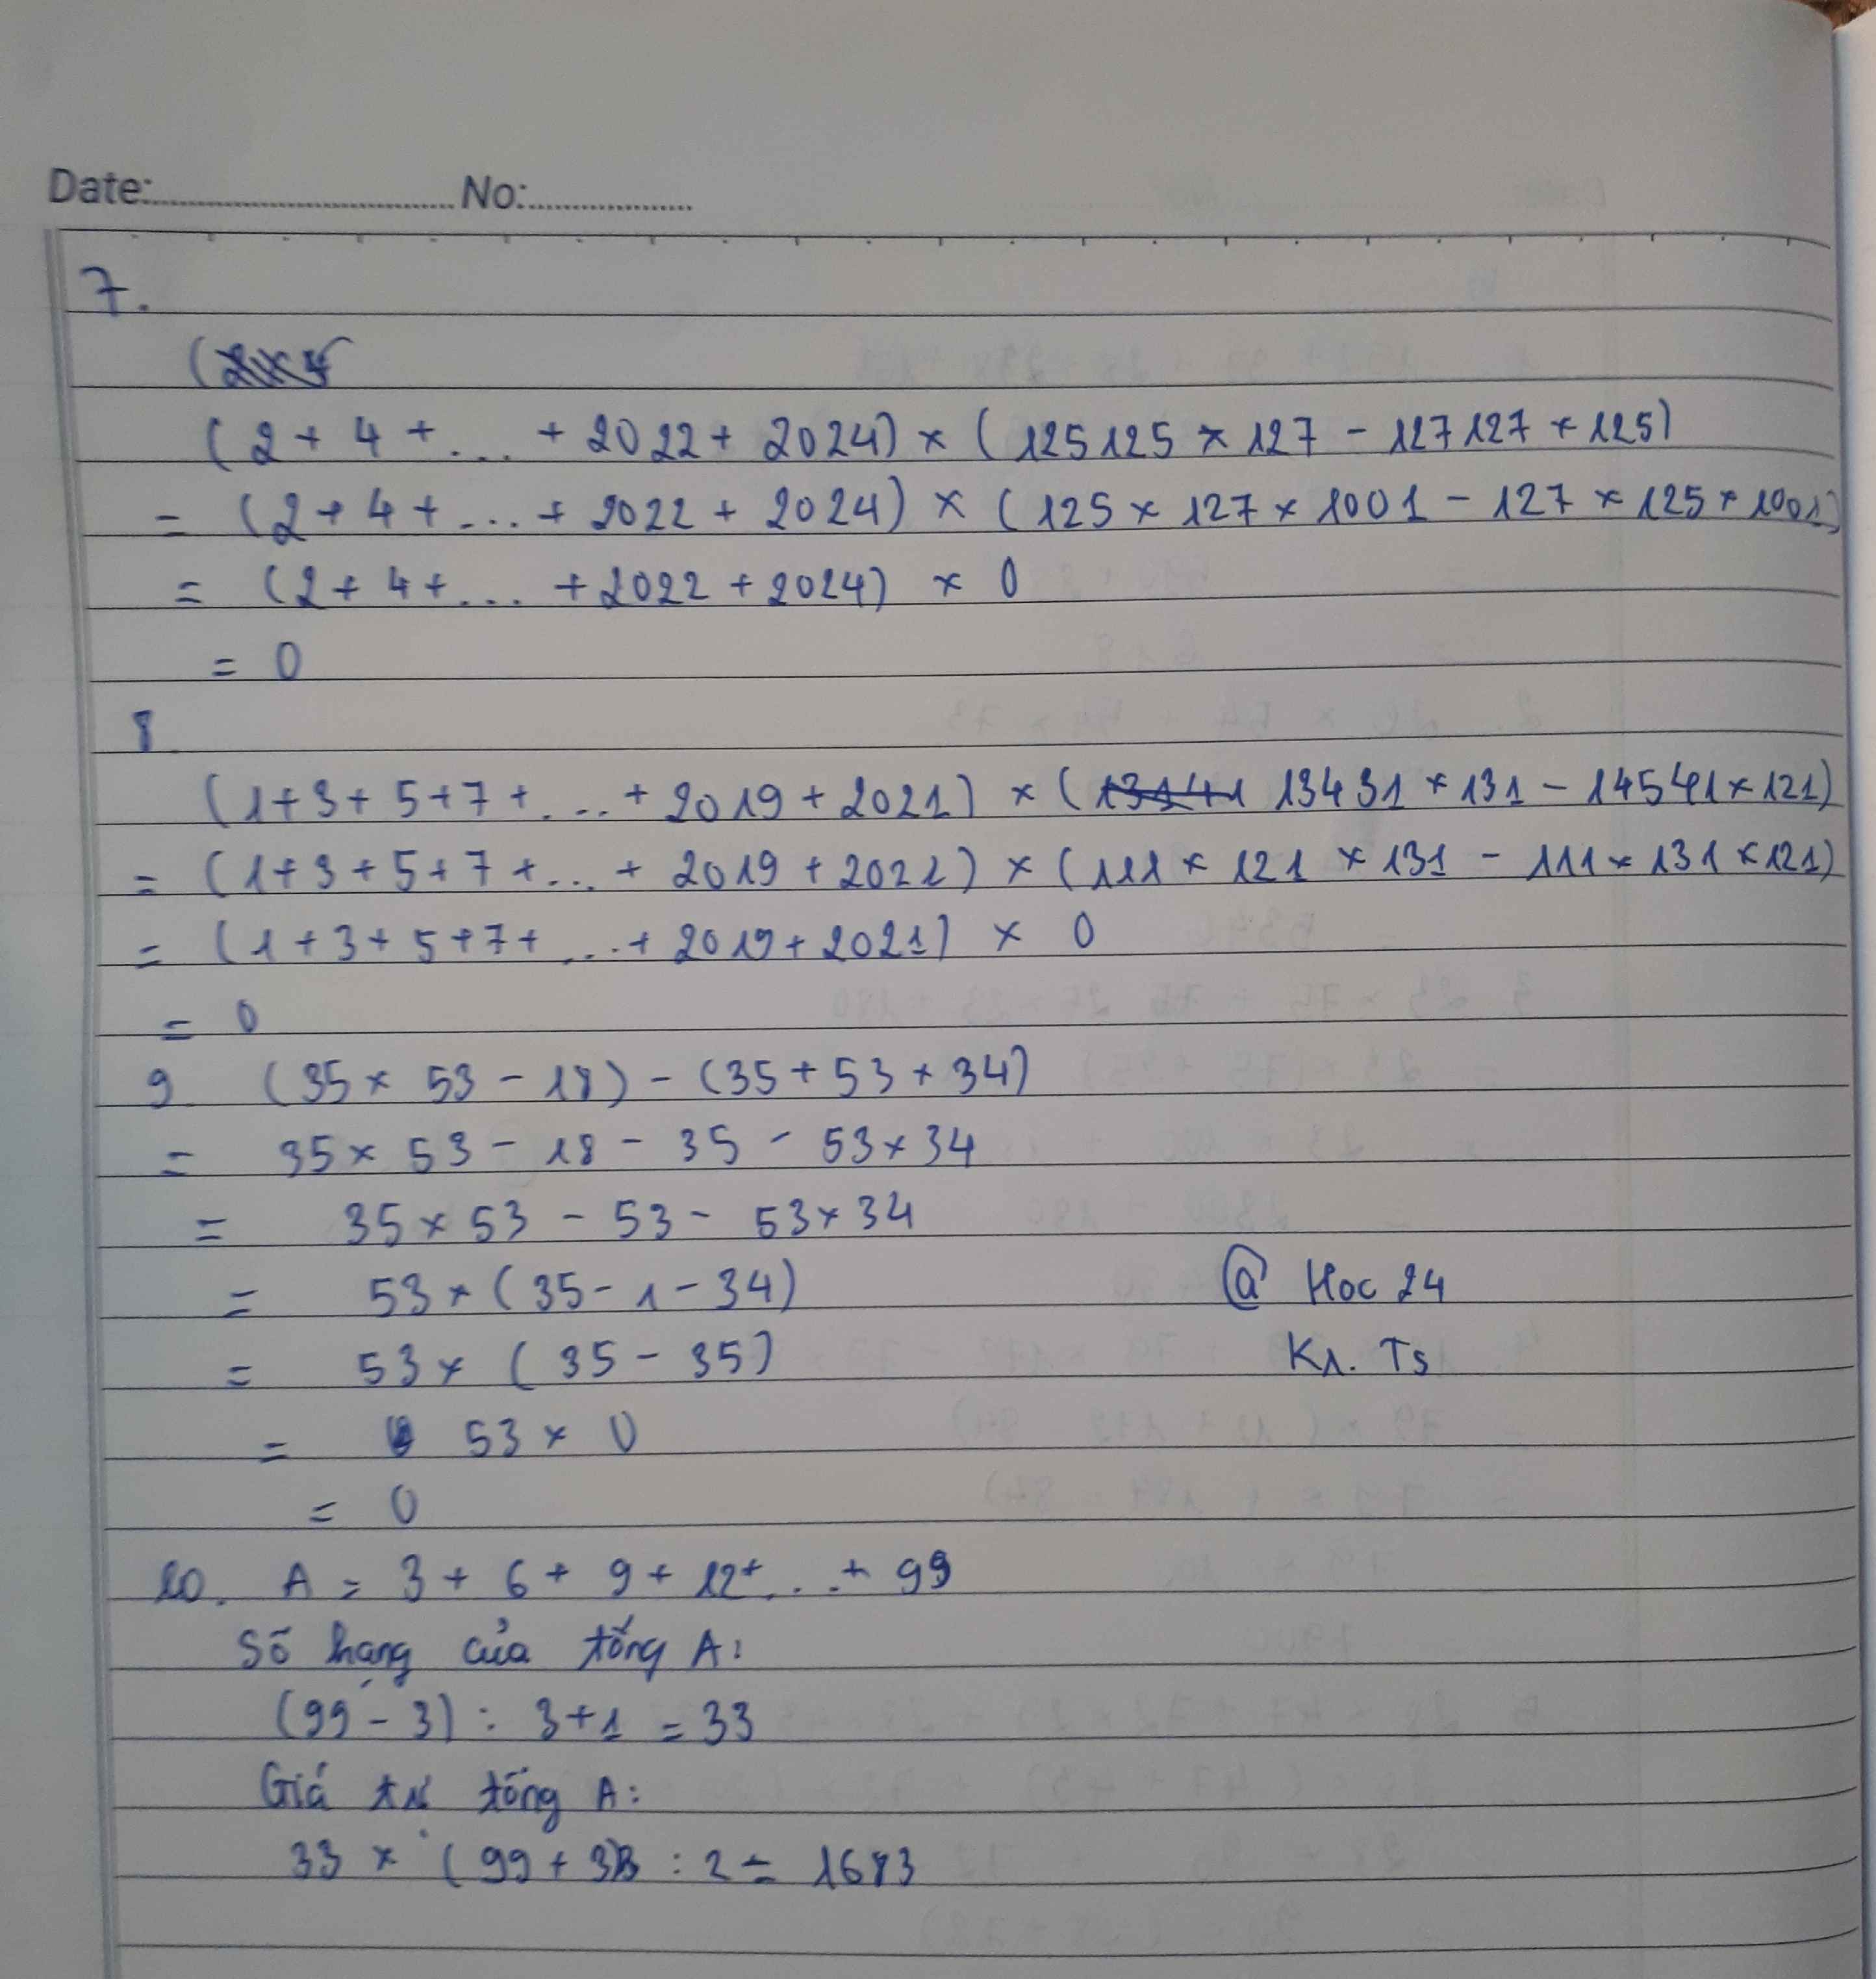 Date: No:
7.
(2 + 4 + ... + 2022 + 2024) × (125125 × 127 - 127127 × 125)
= (2 + 4 + ... + 2022 + 2024) × (125 × 127 × 1001 - 127 × 125 × 1001)
= (2 + 4 + ... + 2022 + 2024) × 0
= 0
8
(1 + 3 + 5 + 7 + ... + 2019 + 2021) × (13431 × 131 - 14541 × 121)
= (1 + 3 + 5 + 7 + ... + 2019 + 2021) × (111 × 121 × 131 - 111 × 131 × 121)
= (1 + 3 + 5 + 7 + ... + 2019 + 2021) × 0
= 0
9 (35 × 53 - 18) - (35 + 53 × 34)
= 35 × 53 - 18 - 35 - 53 × 34
= 35 × 53 - 53 - 53 × 34
= 53 × (35 - 1 - 34)
@ Hoc 24
= 53 × (35 - 35)
Kr. Ts
= 53 × 0
= 0
10. A = 3 + 6 + 9 + 12 + ... + 99
Số hạng của tổng A:
(99 - 3) : 3 + 1 = 33
Giá trị tổng A:
33 × (99 + 3) : 2 = 1683